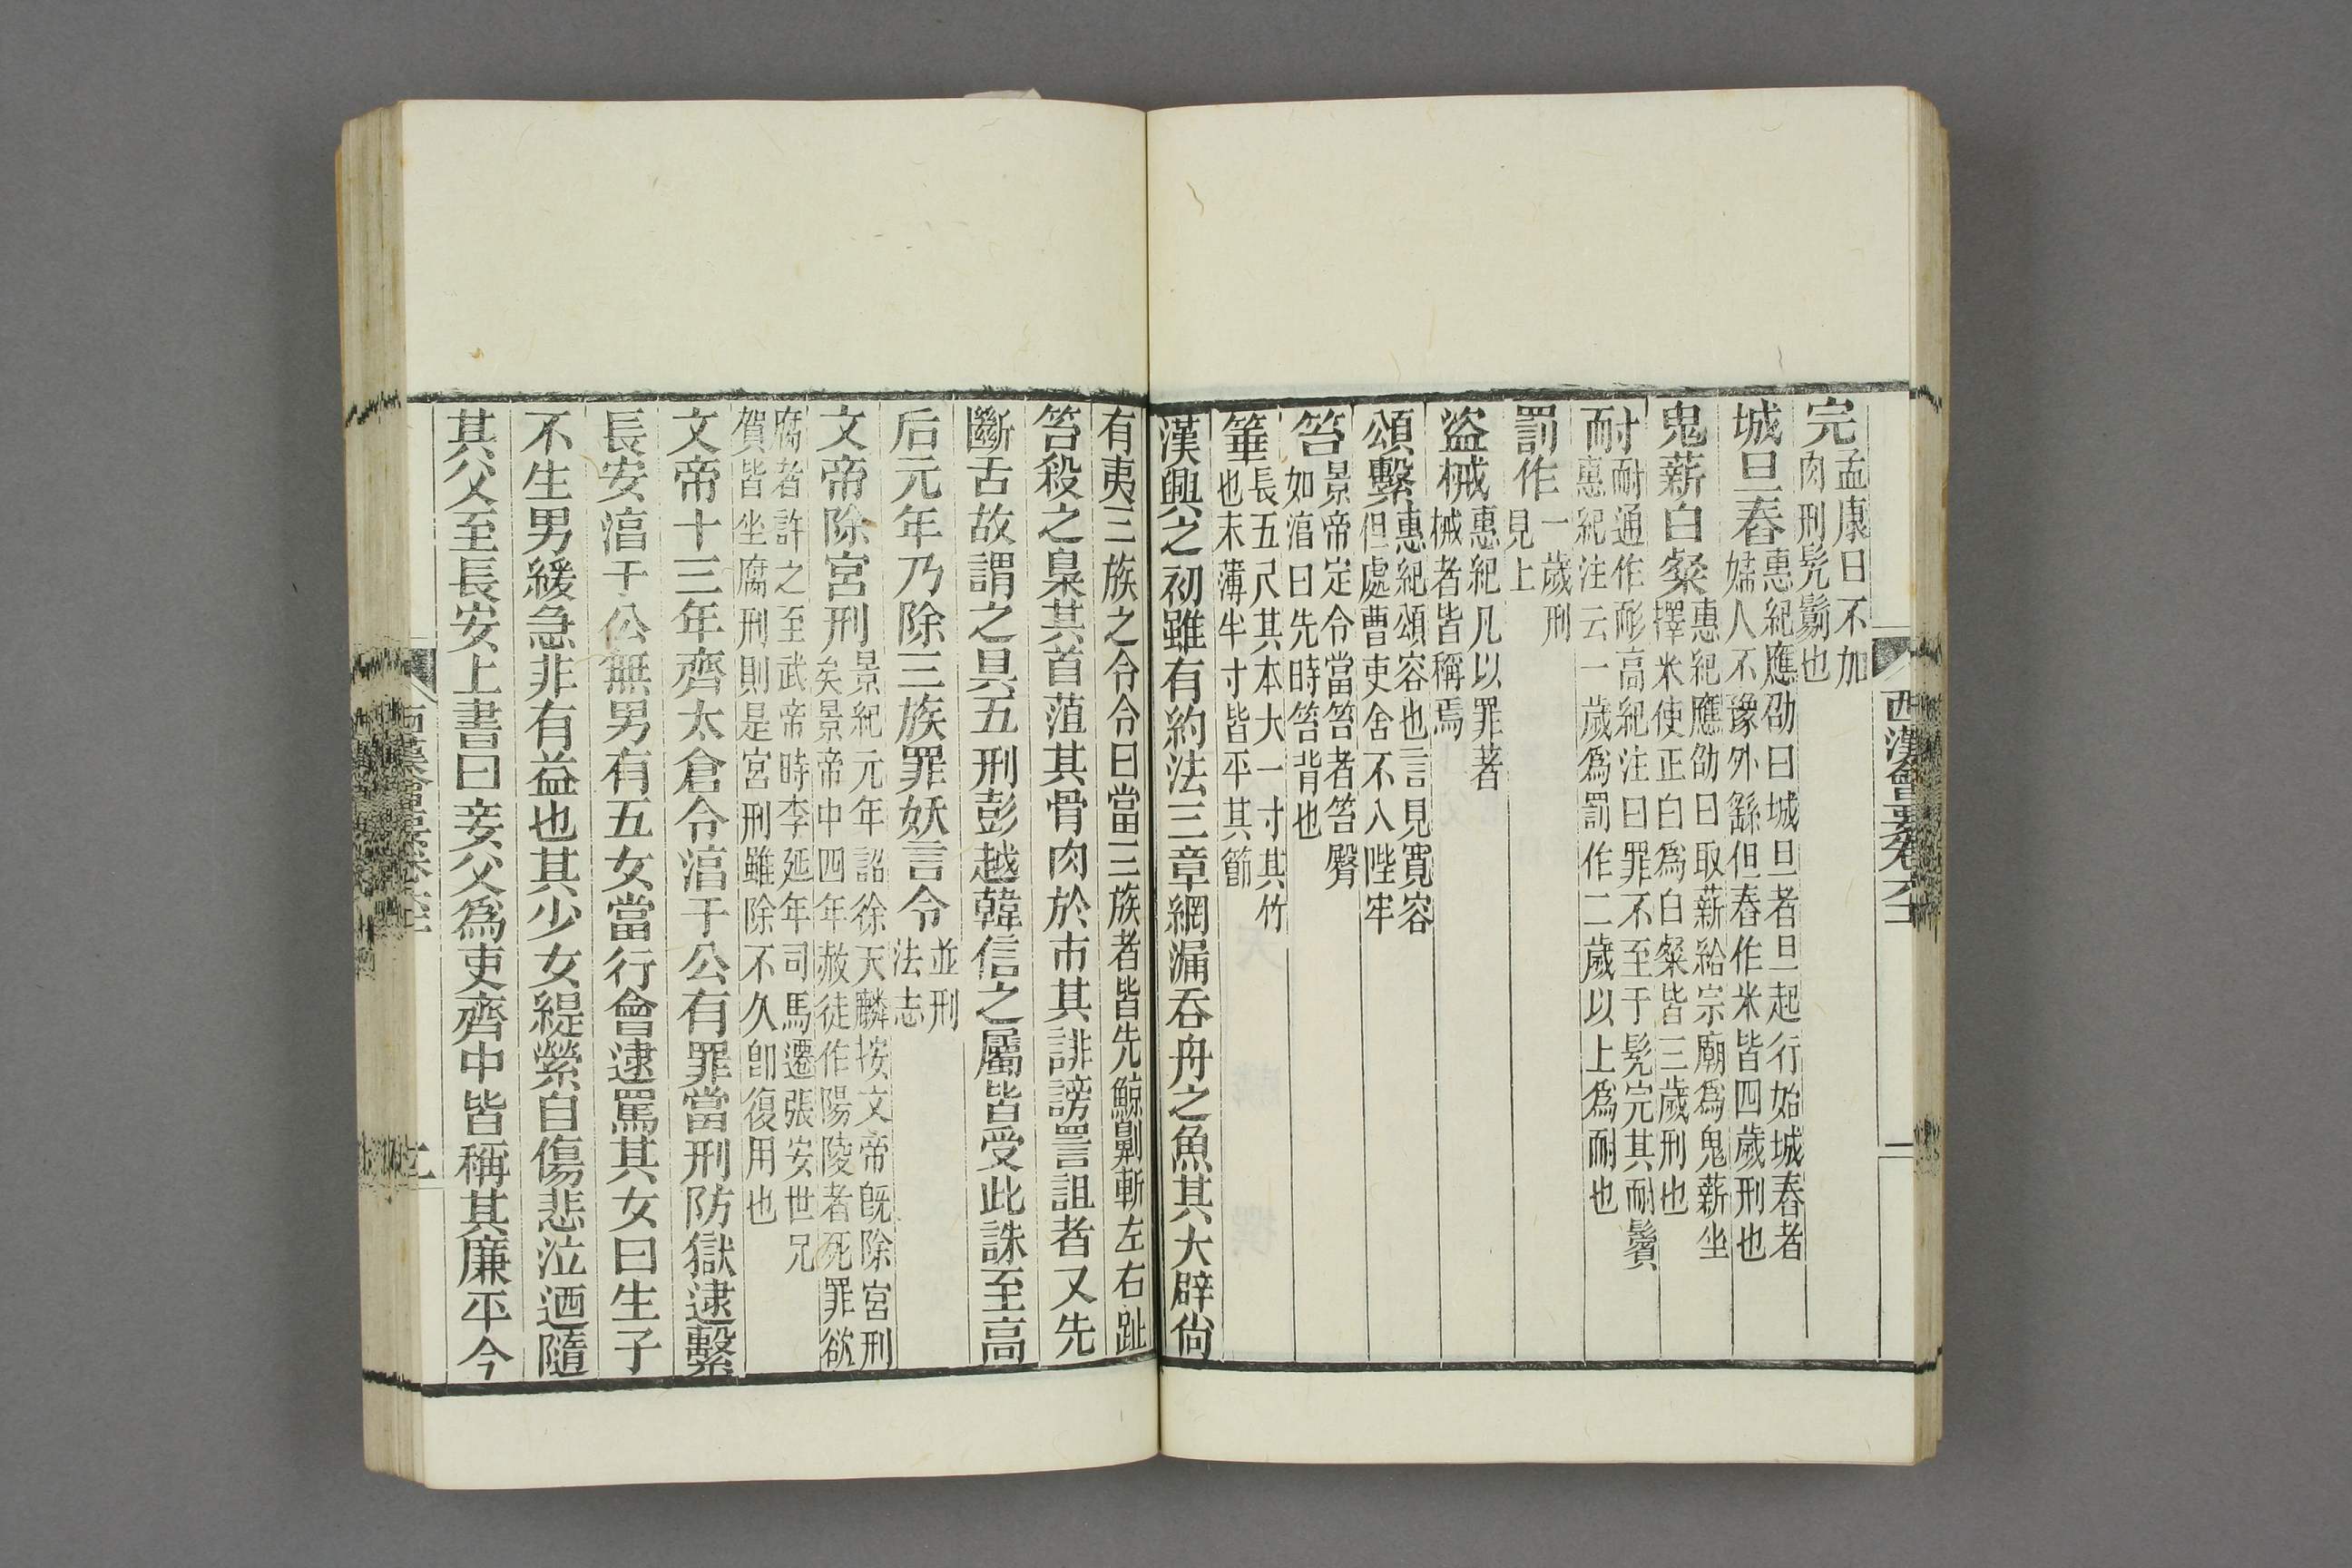 西漢會要卷六十一
二
完孟康曰不加肉刑髡鬀也
城旦舂惠紀應劭曰城旦者旦起行始城舂者婦人不豫外繇但舂作米皆四歲刑也
鬼薪白粲惠紀應劭曰取薪給宗廟爲鬼薪坐擇米使正白爲白粲皆三歲刑也
耐耐通作耏高紀注曰罪不至于髡完其耐鬢惠紀注云一歲爲罰作二歲以上爲耐也
罰作一歲刑見上
盜械惠紀凡以罪著械者皆稱焉
頌繫惠紀頌容也言見寬容但處曹吏舍不入陛牢
笞景帝定令當笞者笞臀如淳曰先時笞背也
箠長五尺其本大一寸其竹也末薄半寸皆平其節
漢興之初雖有約法三章網漏吞舟之魚其大辟尙
有夷三族之令令曰當三族者皆先鯨劓斬左右趾
笞殺之梟其首菹其骨肉於市其誹謗詈詛者又先
斷舌故謂之具五刑彭越韓信之屬皆受此誅至高
后元年乃除三族罪妖言令並刑法志
文帝除宮刑景紀元年詔徐天麟按文帝旣除宮刑矣景帝中四年赦徒作陽陵者死罪欲
腐者許之至武帝時李延年司馬遷張安世兄賀皆坐腐刑則是宮刑雖除不久卽復用也
文帝十三年齊太倉令淳于公有罪當刑防獄逮繫
長安淳于公無男有五女當行會逮罵其女曰生子
不生男緩急非有益也其少女緹縈自傷悲泣迺隨
其父至長安上書曰妾父爲吏齊中皆稱其廉平今